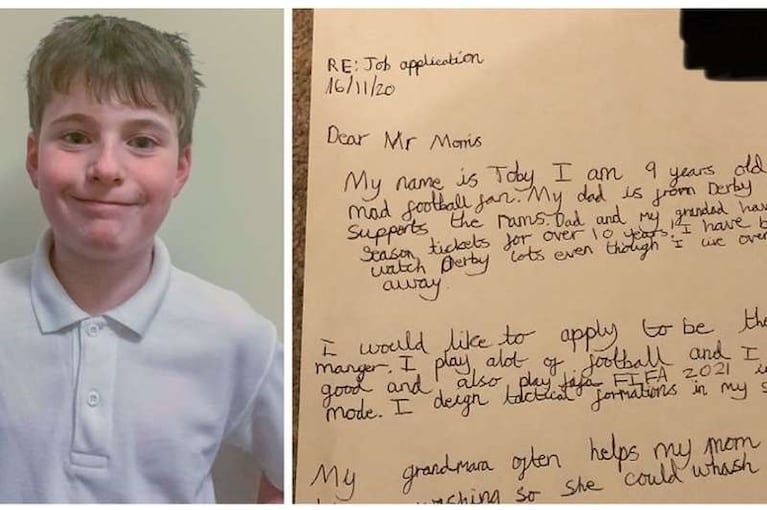 RE: Job application
16/11/20
Dear Mr Morris
My name is Toby I am 9 years old
mad football fan. My dad is from Derby
supports the rams. Dad and my grandad hav
season tickets for over 10 years! I have b
watch Derby lots even though I live over
away.
I would like to apply to be the
manger. I play alot of football and I
good and also play fifa FIFA 2021 i
mode. I deign tactical formations in my s
My grandmara often helps my mom
washing so she could whash